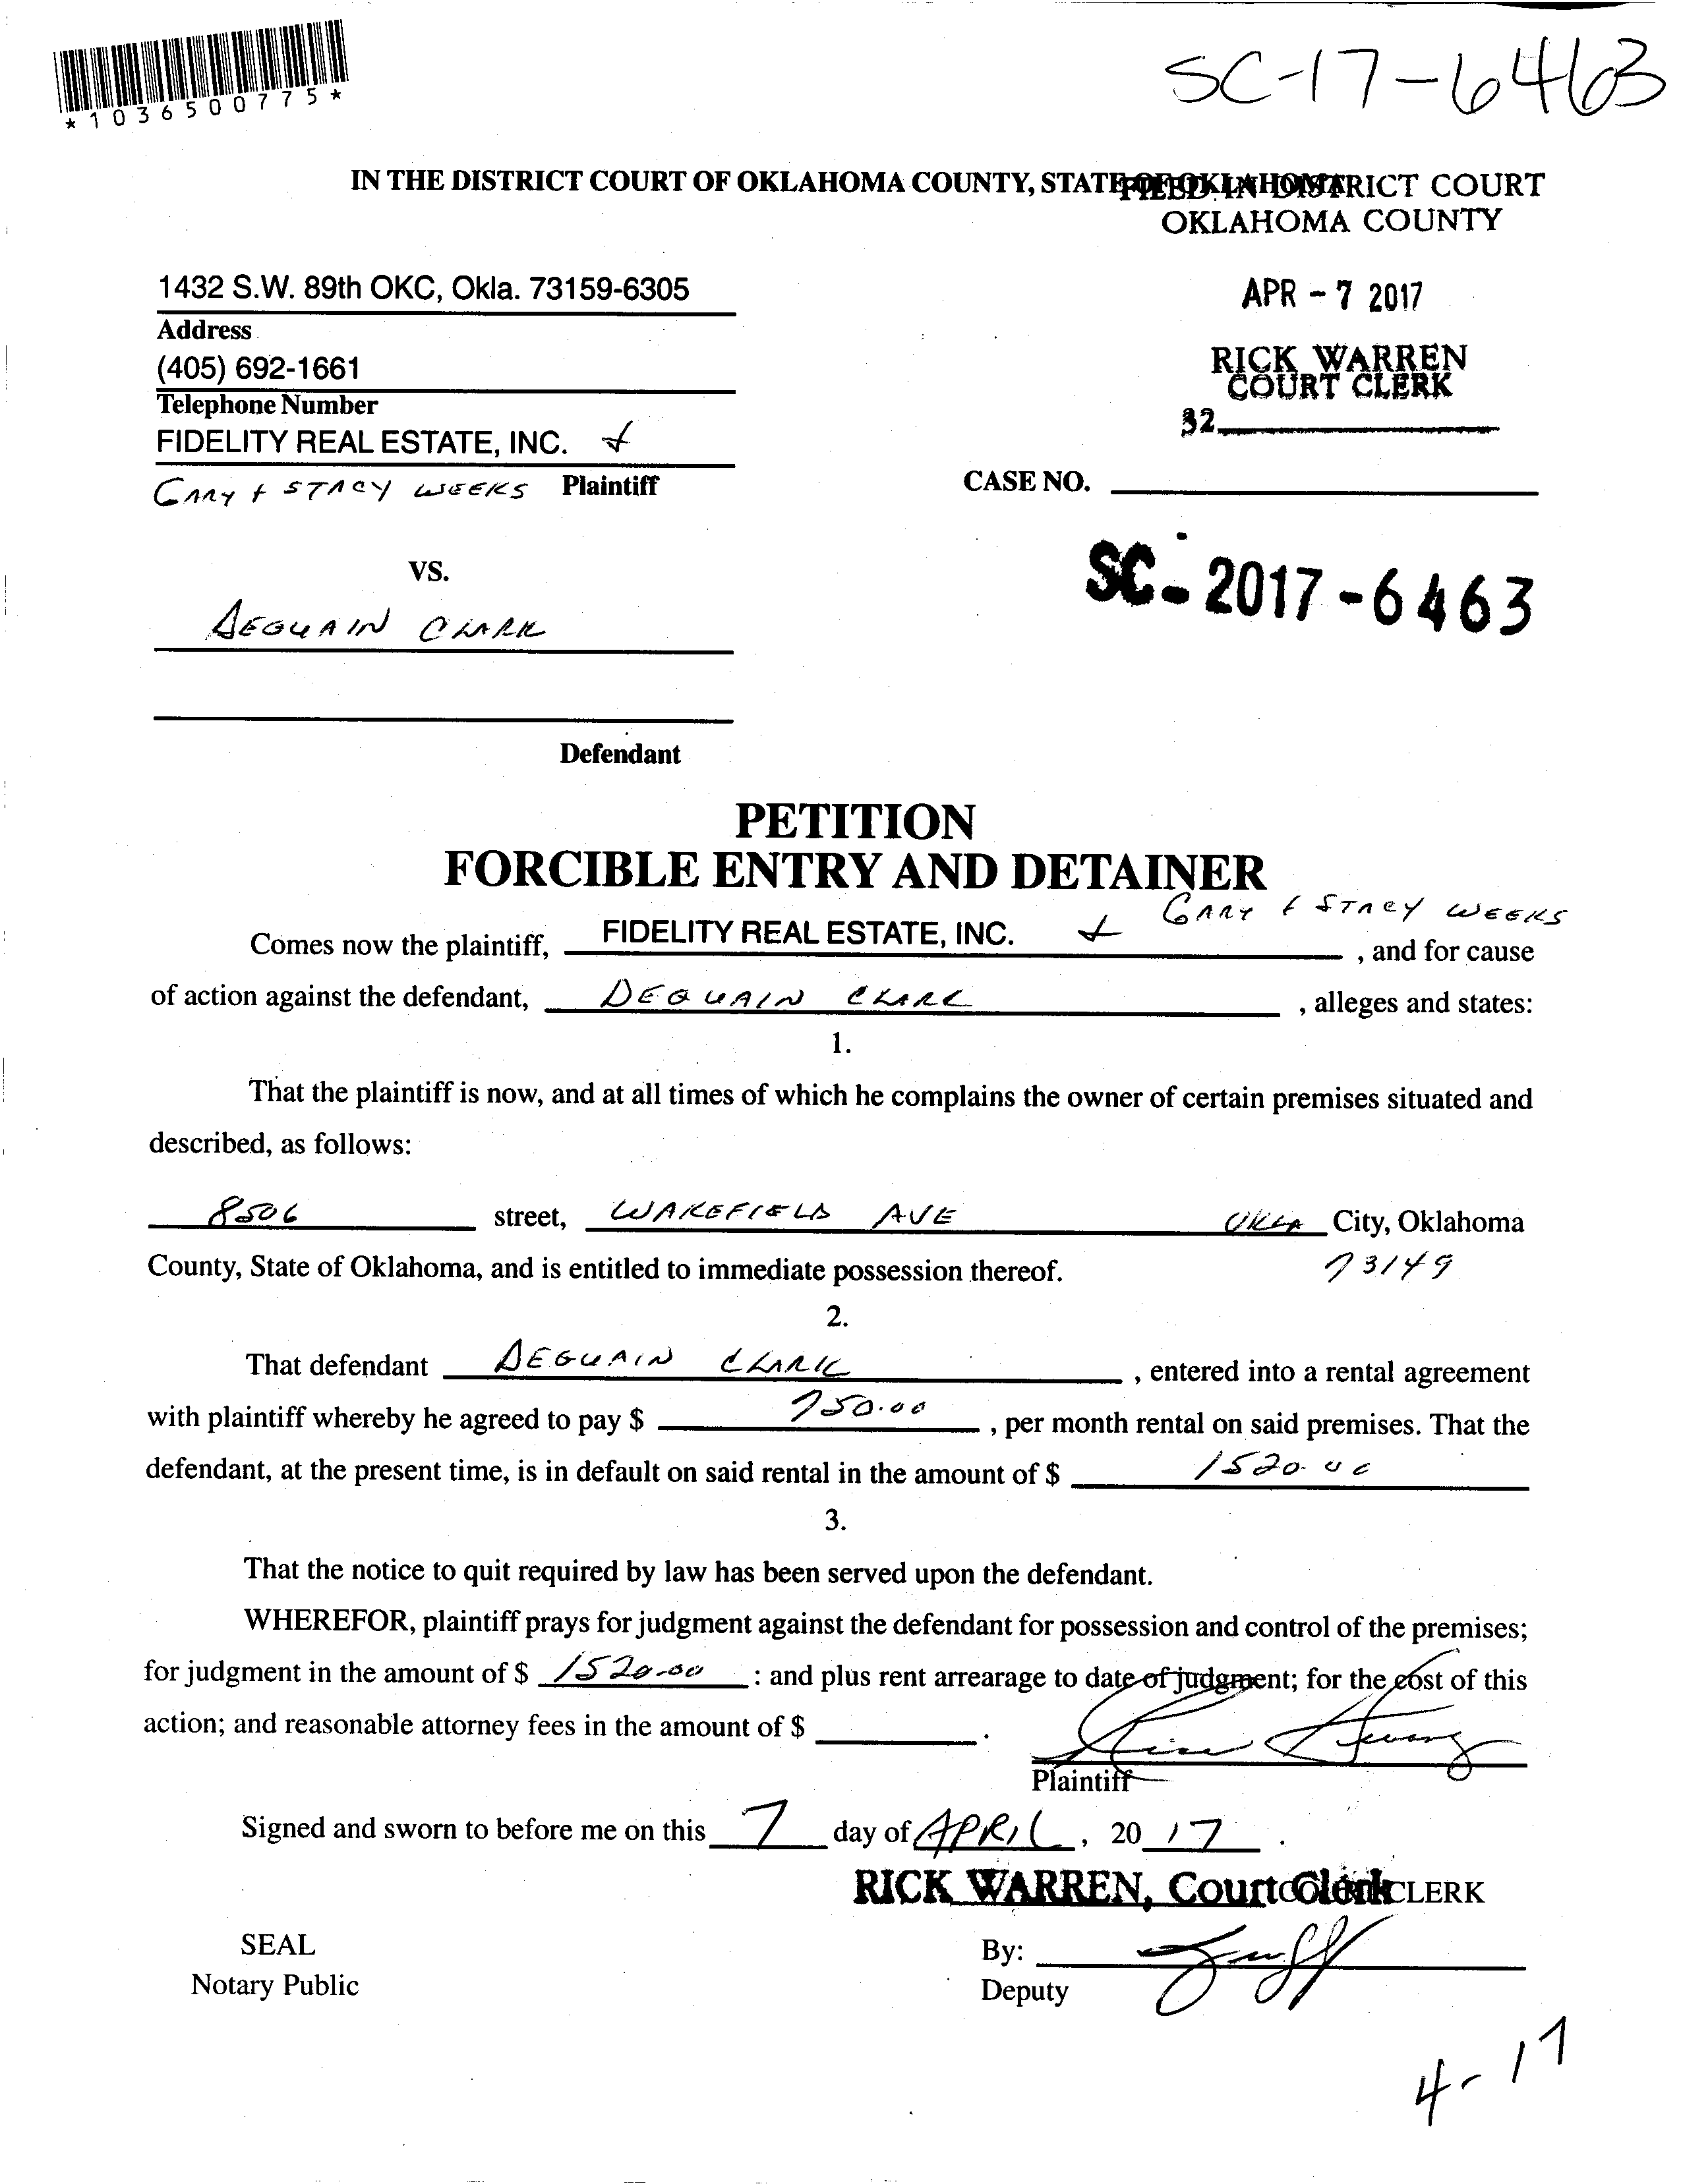 *1036500775*
SC-17-6463
IN THE DISTRICT COURT OF OKLAHOMA COUNTY, STATE OF OKLAHOMA
FILED IN DISTRICT COURT
OKLAHOMA COUNTY
1432 S.W. 89th OKC, Okla. 73159-6305
Address
APR - 7 2017
(405) 692-1661
Telephone Number
RICK WARREN
COURT CLERK
32
FIDELITY REAL ESTATE, INC. +
GARY + STACY WEEKS Plaintiff
CASE NO.
SC-2017-6463
VS.
DEQUAIN CLARK
Defendant
PETITION
FORCIBLE ENTRY AND DETAINER
Comes now the plaintiff, FIDELITY REAL ESTATE, INC. + GARY + STACY WEEKS, and for cause
of action against the defendant, DEQUAIN CLARK, alleges and states:
1.
That the plaintiff is now, and at all times of which he complains the owner of certain premises situated and
described, as follows:
8506 street, WAKEFIELD AVE OKLA City, Oklahoma
County, State of Oklahoma, and is entitled to immediate possession thereof. 73149
2.
That defendant DEQUAIN CLARK, entered into a rental agreement
with plaintiff whereby he agreed to pay $ 750.00, per month rental on said premises. That the
defendant, at the present time, is in default on said rental in the amount of $ 1520.00
3.
That the notice to quit required by law has been served upon the defendant.
WHEREFOR, plaintiff prays for judgment against the defendant for possession and control of the premises;
for judgment in the amount of $ 1520.00 : and plus rent arrearage to date of judgment; for the cost of this
action; and reasonable attorney fees in the amount of $ .
Plaintiff
Signed and sworn to before me on this 7 day of APRIL, 20 17 .
RICK WARREN, Court Clerk
COURT CLERK
SEAL
Notary Public
By:
Deputy
4-17